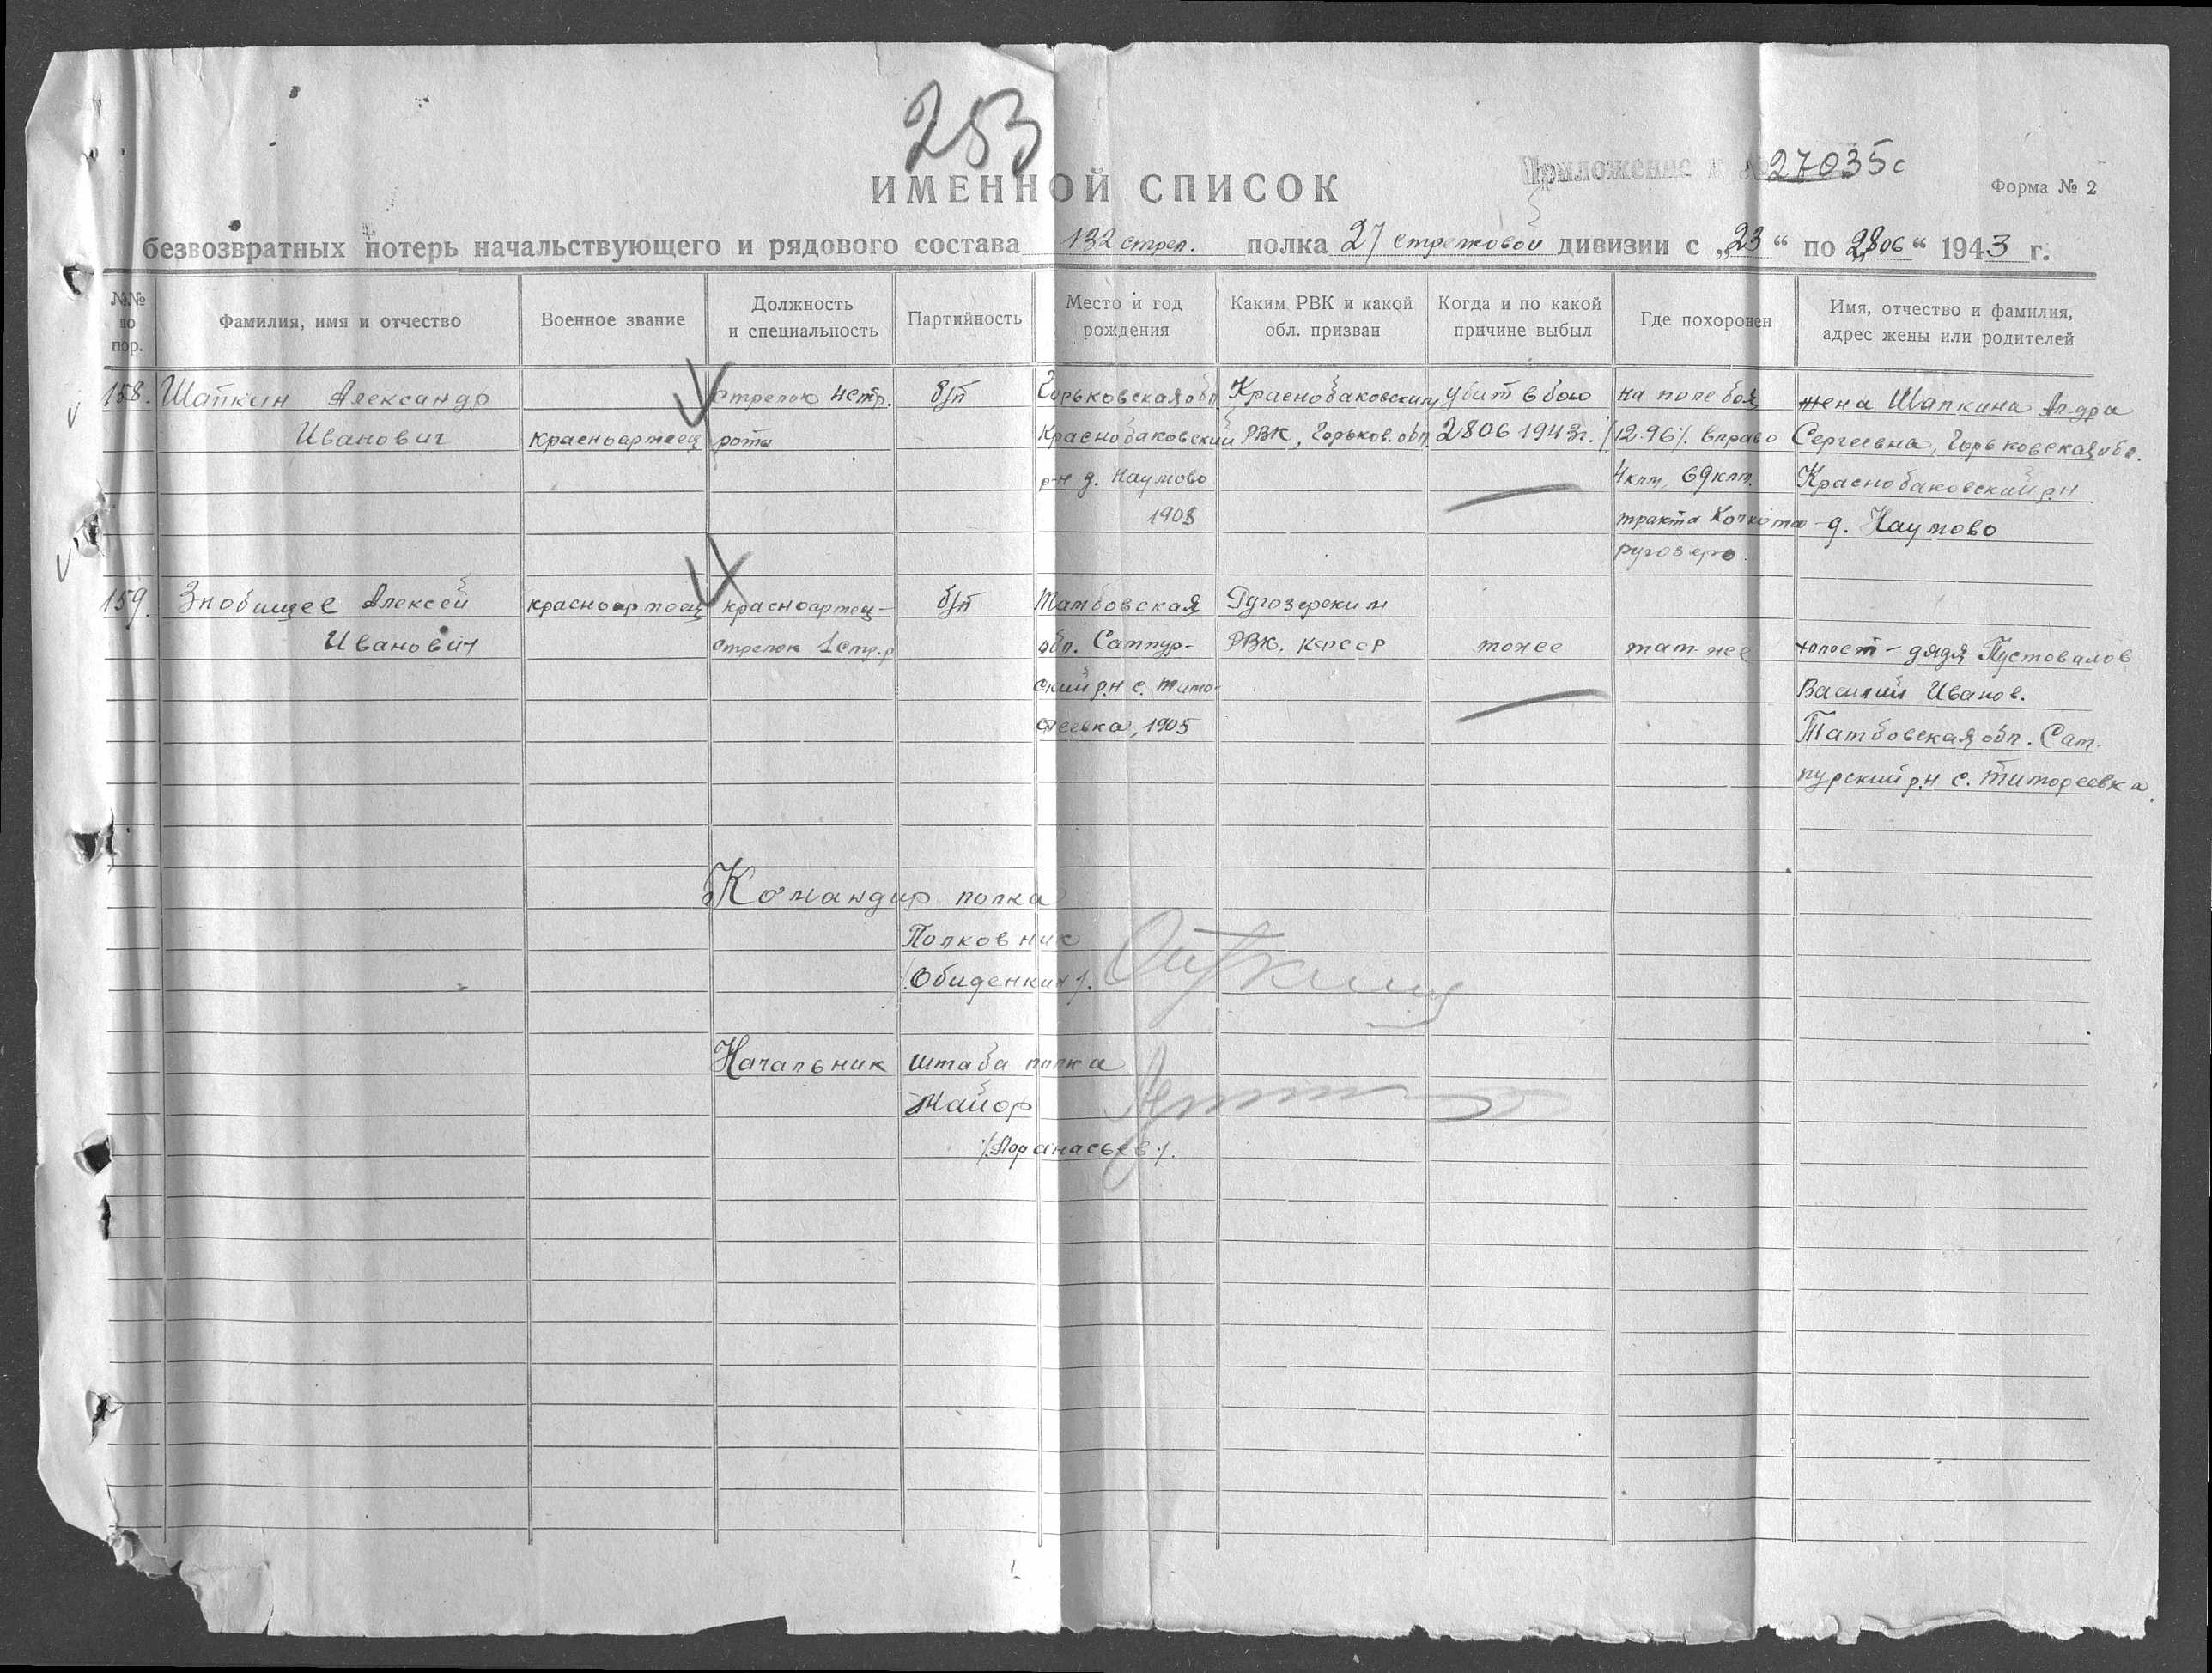 253
Приложение к № 27035с
ИМЕННОЙ СПИСОК
Форма № 2
безвозвратных потерь начальствующего и рядового состава 132 стрел. полка 27 стрелковой дивизии с „23“ по „28 06“ 1943 г.
№№ по пор.
Фамилия, имя и отчество
Военное звание
Должность и специальность
Партийность
Место и год рождения
Каким РВК и какой обл. призван
Когда и по какой причине выбыл
Где похоронен
Имя, отчество и фамилия, адрес жены или родителей
158. Шапкин Александр стрелок 4 стр. б/п Горьковская обл Краснобаковским убит в бою на поле боя жена Шапкина
Иванович красноармеец роты Краснобаковский РВК, Горьков. обл 28 06 1943г. /12.96/. вправо Сергеевна, Горьковская обл.
р-н д. Наумово 4 клм, 69 клм. Краснобаковский р.н
1908 тракта д. Наумово
ругозеро.
159. Алексей красноармеец красноармец- б/п Тамбовская Ругозерским
Иванович стрелок 1 стр. р обл. Сампур- РВК, КФССР тоже там же холост - дядя Пустовалов
ский р.н с. Тимо- Василий Иванов.
феевка, 1905 Тамбовская обл. Сам-
пурский р.н с. Тимофеевка.
Командир полка
Полковник
/Обиденкин/.
Начальник штаба полка
Майор
/Афанасьев/.